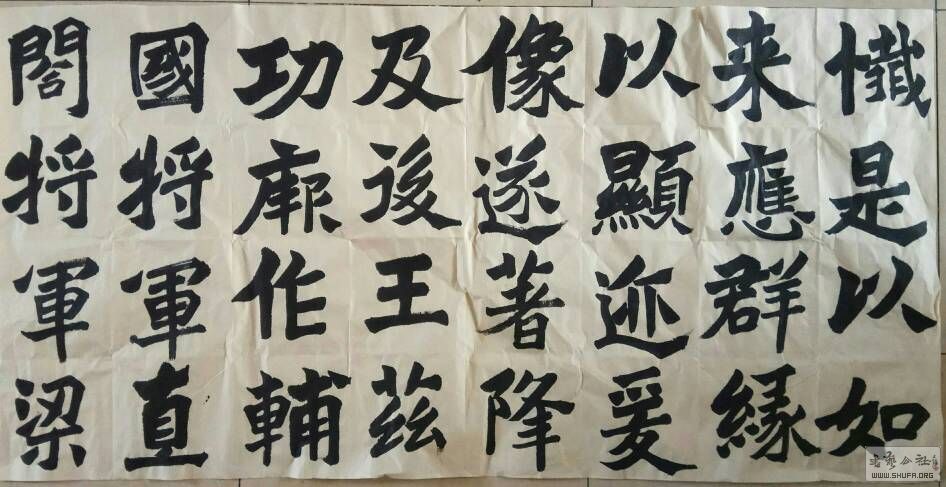 懺是以如
来應群緣
以顯迹爰
像遂著降
及後王茲
功厥作輔
國将軍直
閤将軍梁
书艺公社
WWW.SHUFA.ORG